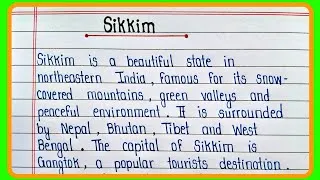 Sikkim
Sikkim is a beautiful state in
northeastern India, famous for its snow-
covered mountains, green valleys and
peaceful environment. It is surrounded
by Nepal, Bhutan, Tibet and West
Bengal. The capital of Sikkim is
Gangtok, a popular tourists destination.